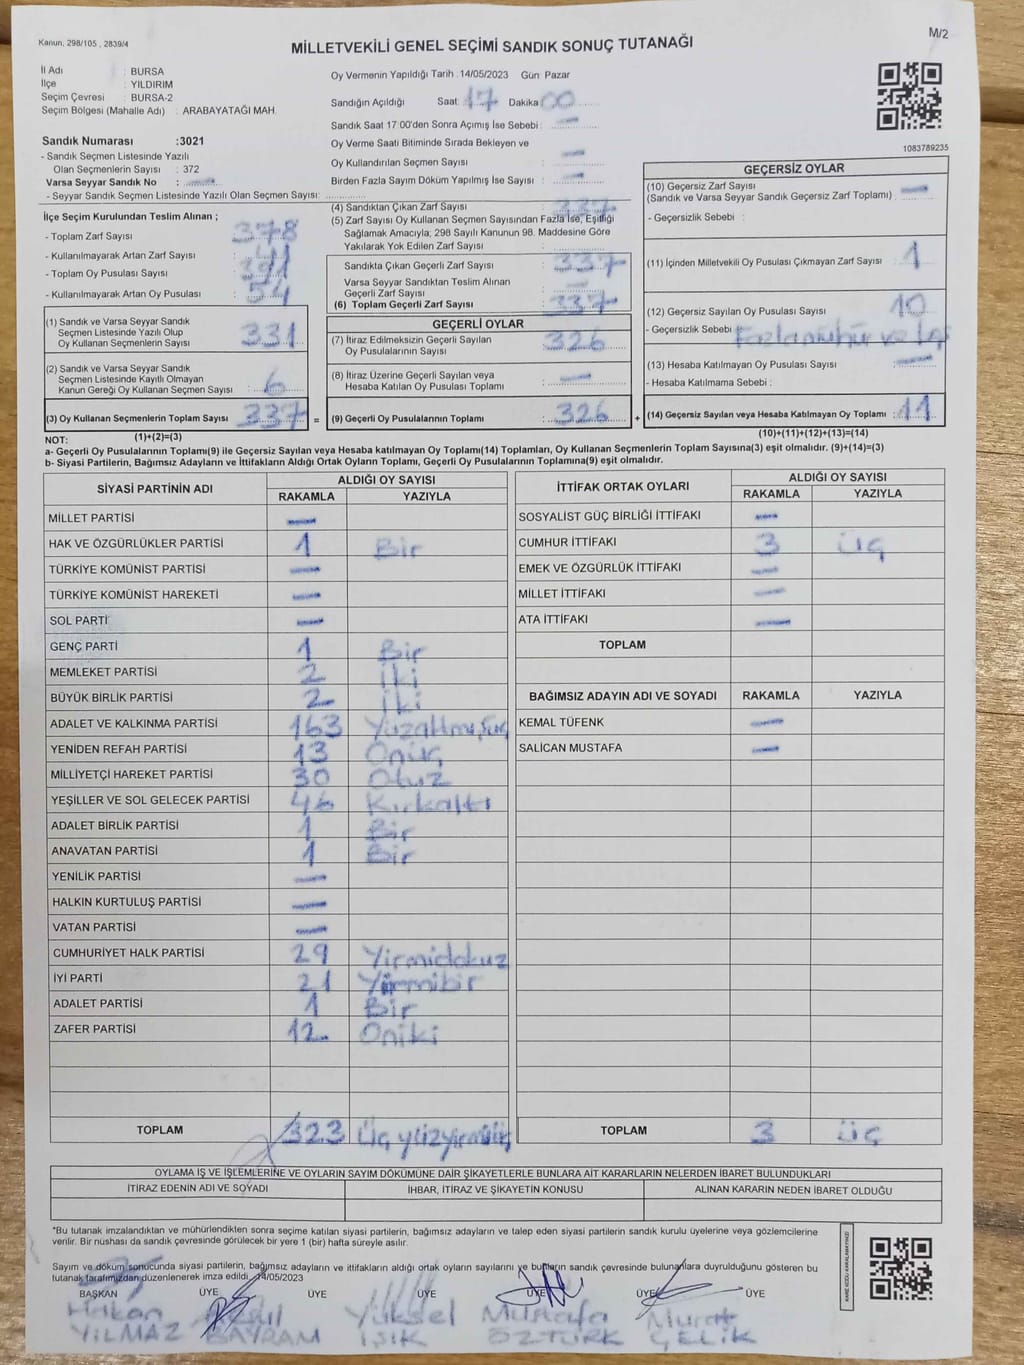 Kanun, 298/105 , 2839/4
MİLLETVEKİLİ GENEL SEÇİMİ SANDIK SONUÇ TUTANAĞI
M/2
İl Adı : BURSA
İlçe : YILDIRIM
Seçim Çevresi : BURSA-2
Seçim Bölgesi (Mahalle Adı) : ARABAYATAĞI MAH.
Sandık Numarası :3021
- Sandık Seçmen Listesinde Yazılı
Olan Seçmenlerin Sayısı : 372
Varsa Seyyar Sandık No : —
- Seyyar Sandık Seçmen Listesinde Yazılı Olan Seçmen Sayısı:
Oy Vermenin Yapıldığı Tarih :14/05/2023 Gün: Pazar
Sandığın Açıldığı Saat: 17 Dakika 00
Sandık Saat 17:00'den Sonra Açılmış İse Sebebi : —
Oy Verme Saati Bitiminde Sırada Bekleyen ve
Oy Kullandırılan Seçmen Sayısı : —
Birden Fazla Sayım Döküm Yapılmış İse Sayısı : —
1083789235
İlçe Seçim Kurulundan Teslim Alınan ;
- Toplam Zarf Sayısı : 378
- Kullanılmayarak Artan Zarf Sayısı : 41
- Toplam Oy Pusulası Sayısı : 391
- Kullanılmayarak Artan Oy Pusulası : 54
(1) Sandık ve Varsa Seyyar Sandık
Seçmen Listesinde Yazılı Olup
Oy Kullanan Seçmenlerin Sayısı : 331
(2) Sandık ve Varsa Seyyar Sandık
Seçmen Listesinde Kayıtlı Olmayan
Kanun Gereği Oy Kullanan Seçmen Sayısı : 6
(3) Oy Kullanan Seçmenlerin Toplam Sayısı : 337
(1)+(2)=(3)
(4) Sandıktan Çıkan Zarf Sayısı : 337
(5) Zarf Sayısı Oy Kullanan Seçmen Sayısından Fazla İse, Eşitliği
Sağlamak Amacıyla; 298 Sayılı Kanunun 98. Maddesine Göre
Yakılarak Yok Edilen Zarf Sayısı :
Sandıkta Çıkan Geçerli Zarf Sayısı : 337
Varsa Seyyar Sandıktan Teslim Alınan
Geçerli Zarf Sayısı : —
(6) Toplam Geçerli Zarf Sayısı : 337
GEÇERLİ OYLAR
(7) İtiraz Edilmeksizin Geçerli Sayılan
Oy Pusulalarının Sayısı : 326
(8) İtiraz Üzerine Geçerli Sayılan veya
Hesaba Katılan Oy Pusulası Toplamı : —
= (9) Geçerli Oy Pusulalarının Toplamı : 326 +
GEÇERSİZ OYLAR
(10) Geçersiz Zarf Sayısı : —
(Sandık ve Varsa Seyyar Sandık Geçersiz Zarf Toplamı)
- Geçersizlik Sebebi :
(11) İçinden Milletvekili Oy Pusulası Çıkmayan Zarf Sayısı : 1
(12) Geçersiz Sayılan Oy Pusulası Sayısı : 10
- Geçersizlik Sebebi : Fazla mühür ve
(13) Hesaba Katılmayan Oy Pusulası Sayısı : —
- Hesaba Katılmama Sebebi :
(14) Geçersiz Sayılan veya Hesaba Katılmayan Oy Toplamı : 11
(10)+(11)+(12)+(13)=(14)
NOT:
a- Geçerli Oy Pusulalarının Toplamı(9) ile Geçersiz Sayılan veya Hesaba katılmayan Oy Toplamı(14) Toplamları, Oy Kullanan Seçmenlerin Toplam Sayısına(3) eşit olmalıdır. (9)+(14)=(3)
b- Siyasi Partilerin, Bağımsız Adayların ve İttifakların Aldığı Ortak Oyların Toplamı, Geçerli Oy Pusulalarının Toplamına(9) eşit olmalıdır.
SİYASİ PARTİNİN ADI ALDIĞI OY SAYISI
RAKAMLA YAZIYLA
MİLLET PARTİSİ —
HAK VE ÖZGÜRLÜKLER PARTİSİ 1 Bir
TÜRKİYE KOMÜNİST PARTİSİ —
TÜRKİYE KOMÜNİST HAREKETİ —
SOL PARTİ —
GENÇ PARTİ 1 Bir
MEMLEKET PARTİSİ 2 İki
BÜYÜK BİRLİK PARTİSİ 2 İki
ADALET VE KALKINMA PARTİSİ 163 Yüzaltmışüç
YENİDEN REFAH PARTİSİ 13 Onüç
MİLLİYETÇİ HAREKET PARTİSİ 30 Otuz
YEŞİLLER VE SOL GELECEK PARTİSİ 46 Kırkaltı
ADALET BİRLİK PARTİSİ 1 Bir
ANAVATAN PARTİSİ 1 Bir
YENİLİK PARTİSİ —
HALKIN KURTULUŞ PARTİSİ —
VATAN PARTİSİ —
CUMHURİYET HALK PARTİSİ 29 Yirmidokuz
İYİ PARTİ 21 Yirmibir
ADALET PARTİSİ 1 Bir
ZAFER PARTİSİ 12 Oniki
TOPLAM 323 Üç yüzyirmiüç
İTTİFAK ORTAK OYLARI ALDIĞI OY SAYISI
RAKAMLA YAZIYLA
SOSYALİST GÜÇ BİRLİĞİ İTTİFAKI —
CUMHUR İTTİFAKI 3 Üç
EMEK VE ÖZGÜRLÜK İTTİFAKI —
MİLLET İTTİFAKI —
ATA İTTİFAKI —
TOPLAM
BAĞIMSIZ ADAYIN ADI VE SOYADI RAKAMLA YAZIYLA
KEMAL TÜFENK —
SALİCAN MUSTAFA —
TOPLAM 3 Üç
OYLAMA İŞ VE İŞLEMLERİNE VE OYLARIN SAYIM DÖKÜMÜNE DAİR ŞİKAYETLERLE BUNLARA AİT KARARLARIN NELERDEN İBARET BULUNDUKLARI
İTİRAZ EDENİN ADI VE SOYADI İHBAR, İTİRAZ VE ŞİKAYETİN KONUSU ALINAN KARARIN NEDEN İBARET OLDUĞU
"Bu tutanak imzalandıktan ve mühürlendikten sonra seçime katılan siyasi partilerin, bağımsız adayların ve talep eden siyasi partilerin sandık kurulu üyelerine veya gözlemcilerine
verilir. Bir nüshası da sandık çevresinde görülecek bir yere 1 (bir) hafta süreyle asılır.
Sayım ve döküm sonucunda siyasi partilerin, bağımsız adayların ve ittifakların aldığı ortak oyların sayılarını ve bunların sandık çevresinde bulunanlara duyrulduğunu gösteren bu
tutanak tarafımızdan düzenlenerek imza edildi. 14/05/2023
BAŞKAN ÜYE ÜYE ÜYE ÜYE ÜYE ÜYE
Hakan Yüksel Mustafa Murat
YILMAZ BAYRAM IŞIK ÖZTÜRK ÇELİK